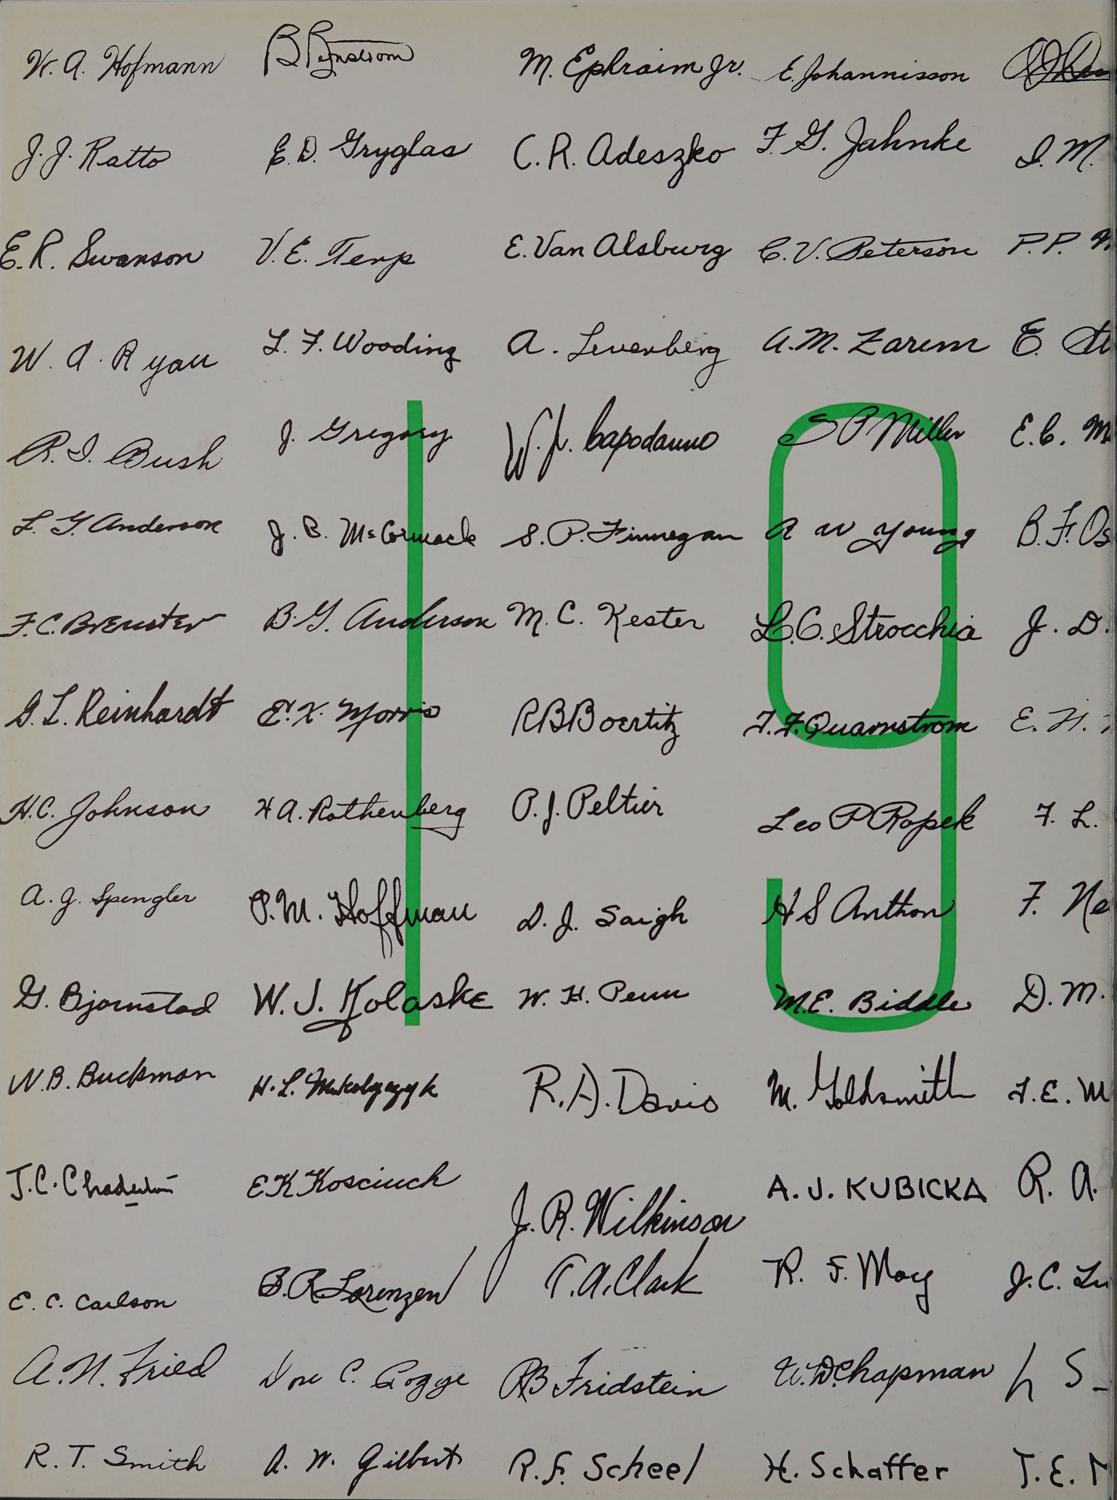 W. A. Hofmann B Bernstrom M. Ephraim Jr. E. Johannisson
J. J. Ratto E. D. Gryglas C. R. Adeszko F. G. Jahnke I. M.
E. R. Swanson V. E. Terp E. Van Alsburg C. V. Peterson P. P.
W. A. Ryan L. F. Wooding A. Levenberg A. M. Zarem E.
R. I. Bush J. Gregory W. J. Capodanno S P Miller E. C.
L. G. Anderson J. B. McCormack S. P. Finnegan A W Young B. F. Os
F. C. Brewster B. G. Anderson M. C. Kester L. C. Strocchia J. D.
G. L. Reinhardt E. X. Morris R B Boertitz F. F. Quarnstrom E. H.
H. C. Johnson H A. Rothenberg P. J. Peltier Leo P Ropek F. L.
A. J. Spengler P. M. Hoffman D. J. Saigh H S Anthon F. Ne
G. Bjornstad W. J. Kolaske W. H. Penn M. E. Biddle D. M.
W. B. Buckman H. L. R. A. Davis M. Goldsmith F. E. M
J. C. E K Kosciuch J. R. Wilkinson A. J. KUBICKA R. A.
E. C. Carlson B. R. Lorenzen T. A. Clark R. F. May J. C. Lu
A. N. Fried C. R B Fridstein W. D. Chapman L S
R. T. Smith A. W. Gilbert R. F. Scheel H. Schaffer T. E.
19